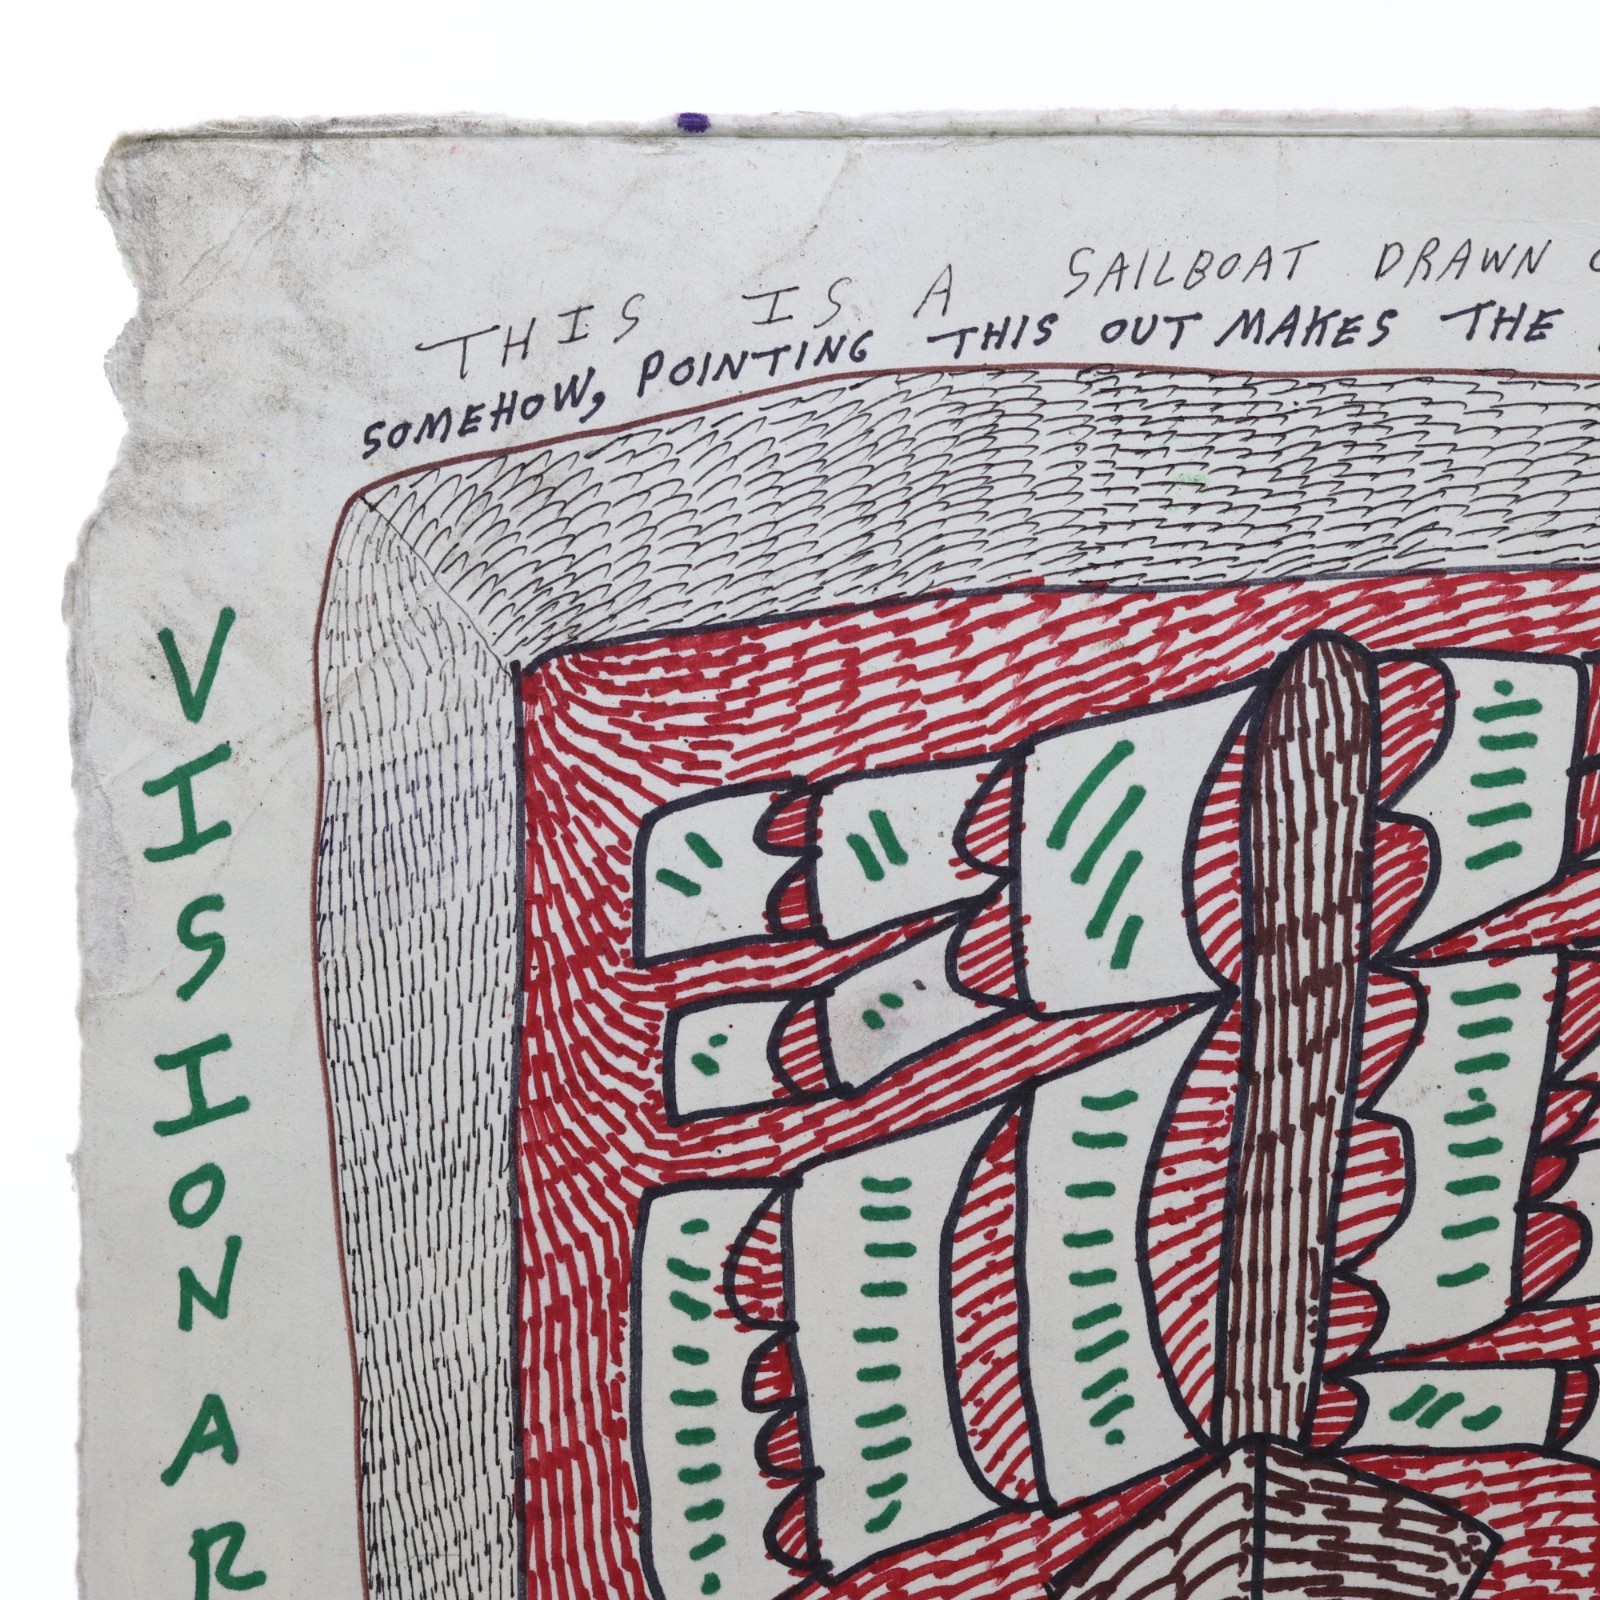 THIS IS A SAILBOAT DRAWN
SOMEHOW, POINTING THIS OUT MAKES THE
VISIONAR